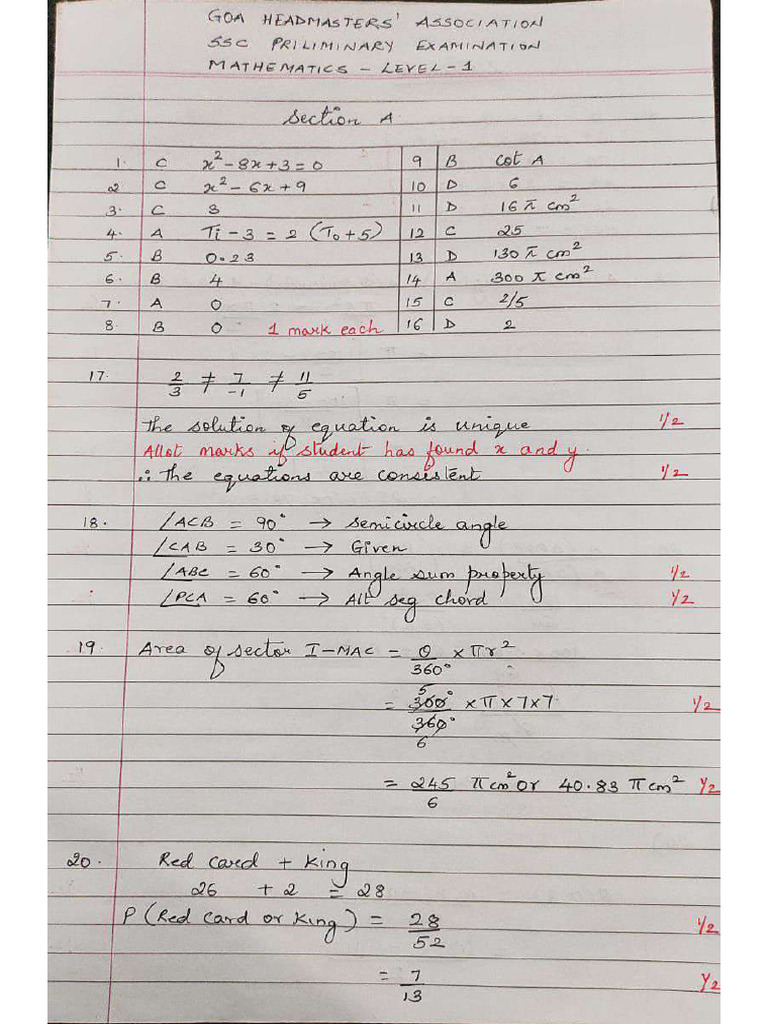 GOA HEADMASTERS' ASSOCIATION
SSC PRILIMINARY EXAMINATION
MATHEMATICS - LEVEL-1
Section A
1. C x²-8x+3=0 9 B cot A
2 C x²-6x+9 10 D 6
3. C 3 11 D 16π cm²
4. A Ti-3 = 2 (To+5) 12 C 25
5. B 0.23 13 D 130π cm²
6. B 4 14 A 300π cm²
7. A 0 15 C 2/5
8. B 0 1 mark each 16 D 2
17. 2/3 ≠ 7/-1 ≠ 11/5
The solution of equation is unique 1/2
Allot marks if student has found x and y.
∴ The equations are consistent 1/2
18. ∠ACB = 90° → Semicircle angle
∠CAB = 30° → Given
∠ABC = 60° → Angle sum property 1/2
∠PCA = 60° → Alt seg chord 1/2
19. Area of sector I-MAC = θ/360° × πr²
5
= 300°/360° × π × 7 × 7 1/2
6
= 245/6 π cm² or 40.83 π cm² 1/2
20. Red card + King
26 + 2 = 28
P (Red card or King) = 28/52 1/2
= 7/13 1/2